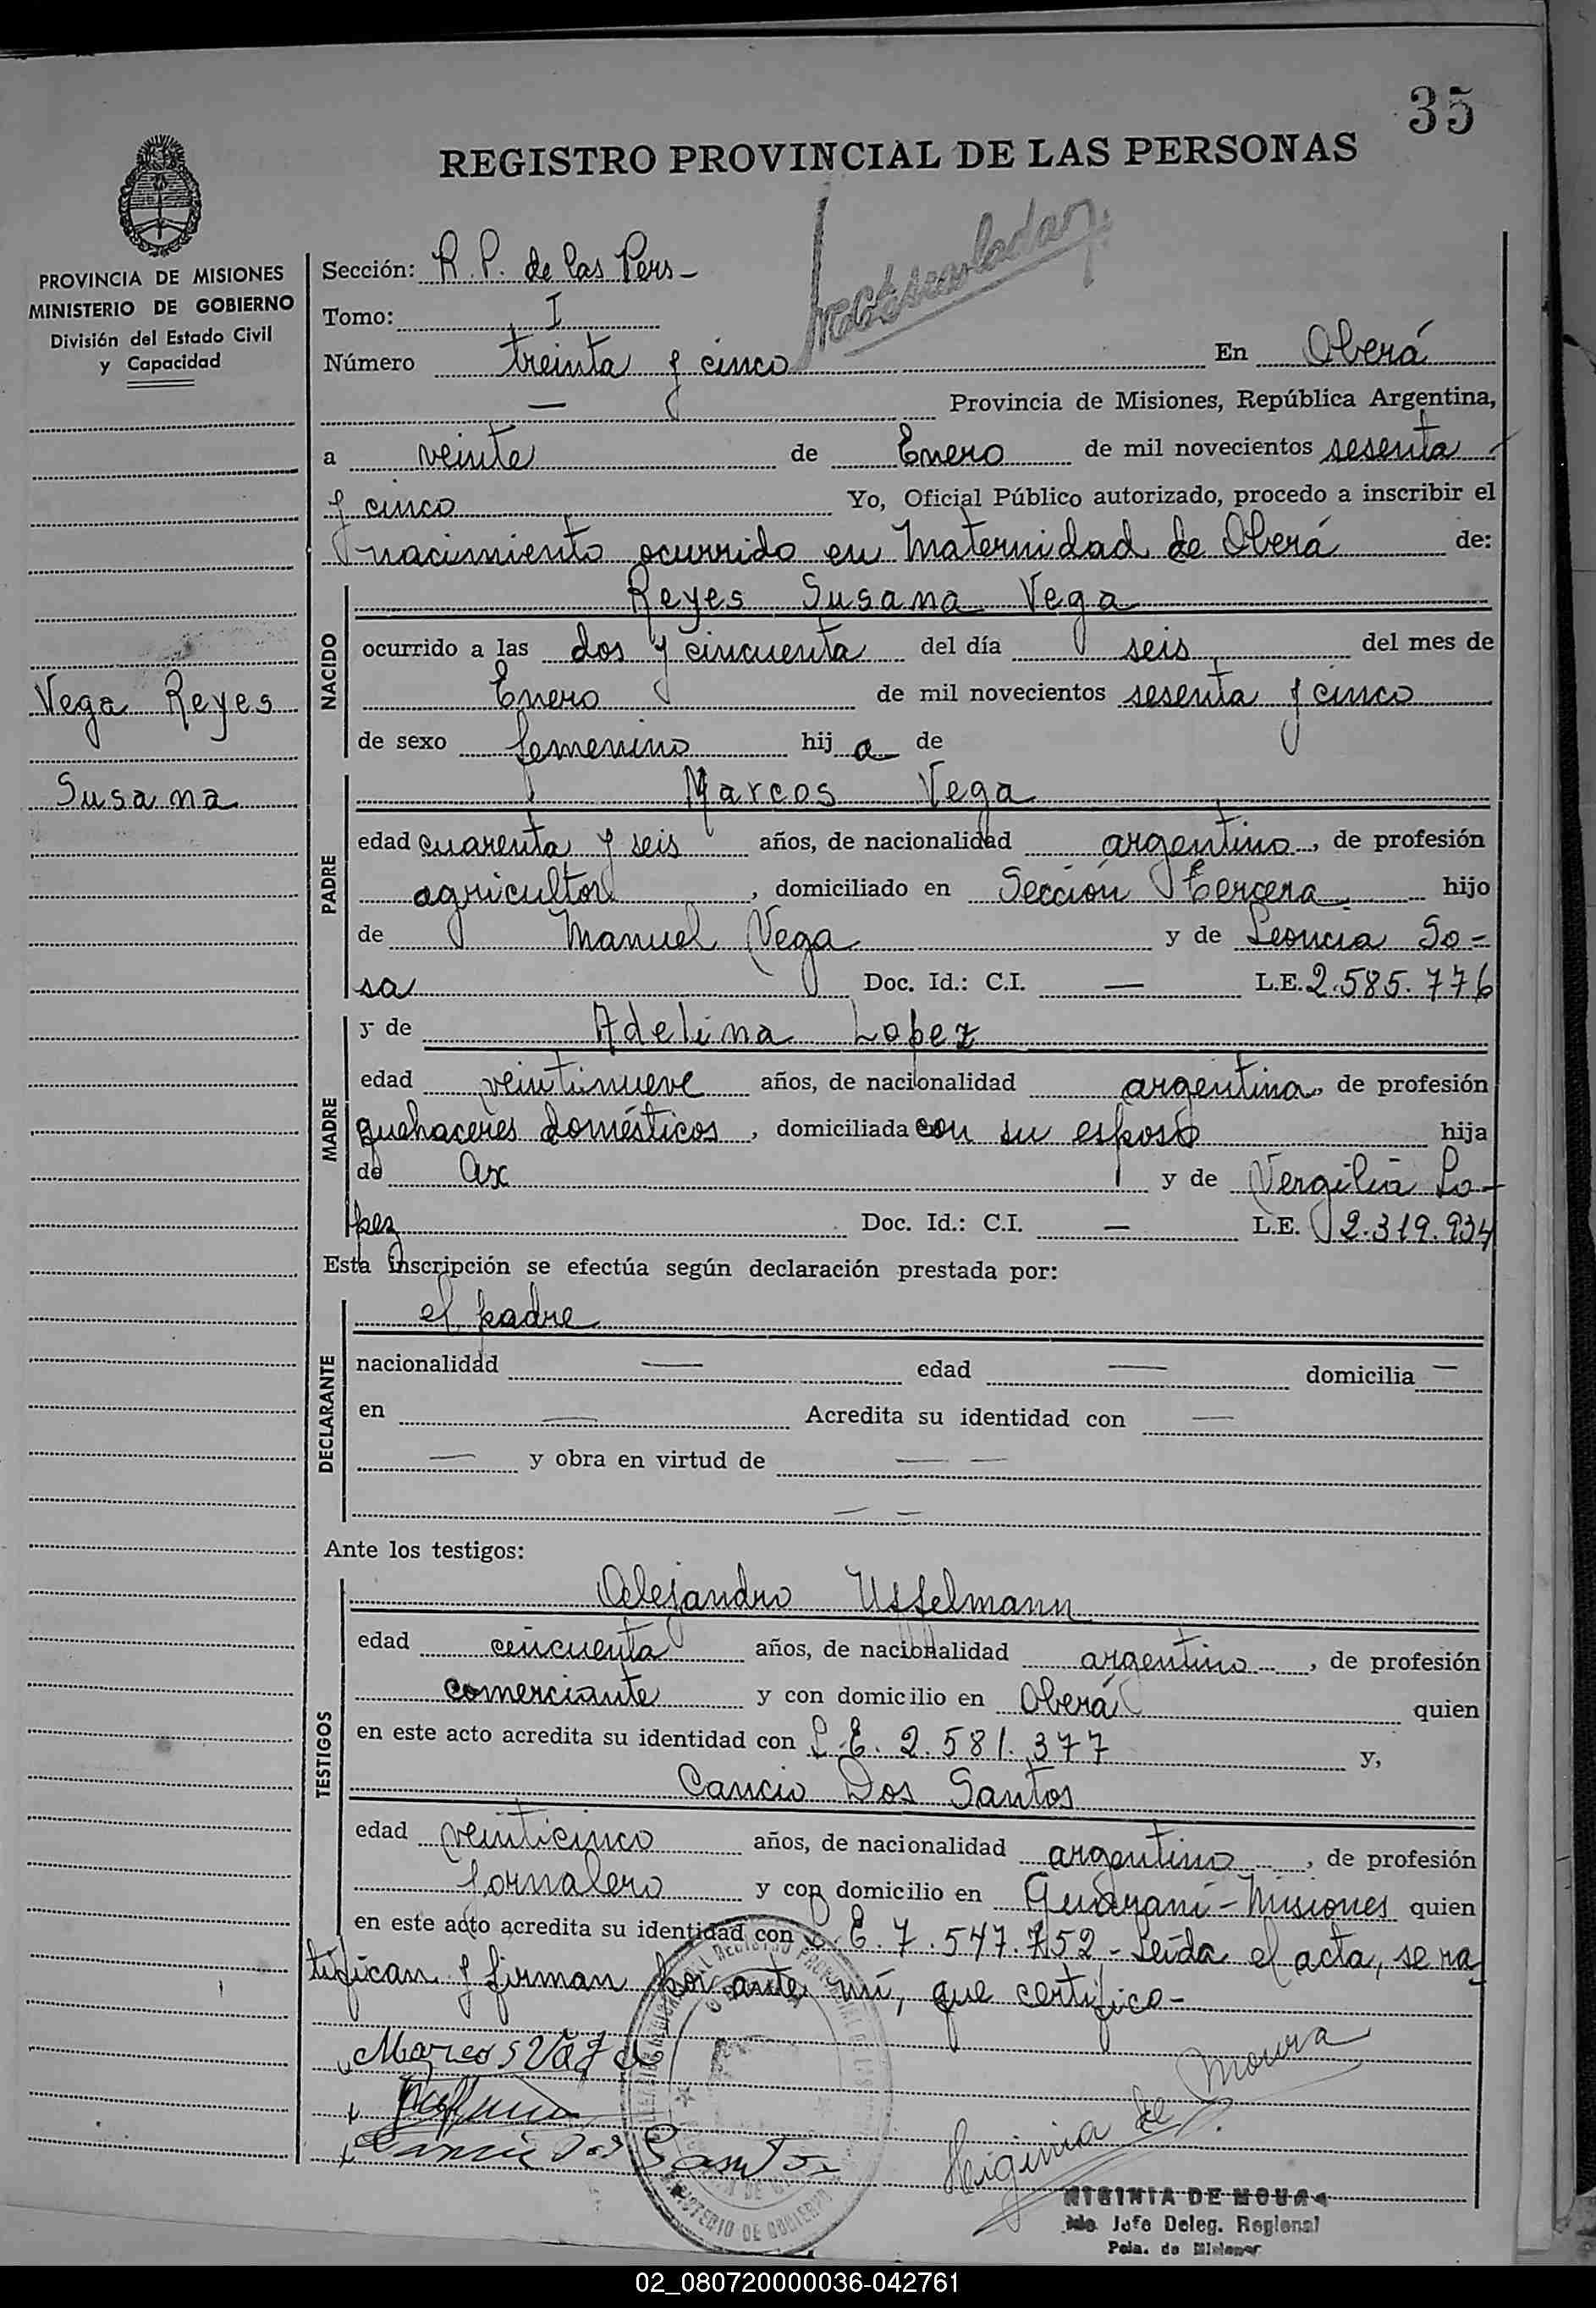 35
REGISTRO PROVINCIAL DE LAS PERSONAS
PROVINCIA DE MISIONES
MINISTERIO DE GOBIERNO
División del Estado Civil
y Capacidad
Vega Reyes
Susana
Sección: R. P. de las Pers-
Tomo: I
Número treinta y cinco En Oberá
— Provincia de Misiones, República Argentina,
a veinte de Enero de mil novecientos sesenta
y cinco Yo, Oficial Público autorizado, procedo a inscribir el
nacimiento ocurrido en Maternidad de Oberá de:
NACIDO
Reyes Susana Vega
ocurrido a las dos y cincuenta del día seis del mes de
Enero de mil novecientos sesenta y cinco
de sexo femenino hij a de
PADRE
Marcos Vega
edad cuarenta y seis años, de nacionalidad argentino, de profesión
agricultor, domiciliado en Sección Tercera hijo
de Manuel Vega y de Leoncia So-
sa Doc. Id.: C.I. — L.E. 2.585.776
MADRE
y de Adelina Lopez
edad veintinueve años, de nacionalidad argentina, de profesión
quehaceres domésticos, domiciliada con su esposo hija
de ax y de Vergilia Lo-
pez Doc. Id.: C.I. — L.E. 2.319.934
Esta inscripción se efectúa según declaración prestada por:
DECLARANTE
el padre
nacionalidad — edad — domicilia —
en — Acredita su identidad con —
— y obra en virtud de — —
— —
Ante los testigos:
TESTIGOS
Alejandro Usselmann
edad cincuenta años, de nacionalidad argentino, de profesión
comerciante y con domicilio en Oberá quien
en este acto acredita su identidad con L.E. 2.581.377 y,
Cancio Dos Santos
edad veinticinco años, de nacionalidad argentino, de profesión
Jornalero y con domicilio en Guaraní-Misiones quien
en este acto acredita su identidad con L.E. 7.547.752 - Leída el acta, se ra-
tifican y firman por ante mí, que certifico-
Marcos Vega
Cancio Dos Santos
Higinia de Moura
HIGINIA DE MOURA
Jefe Deleg. Regional
Pcia. de Misiones
MINISTERIO DE GOBIERNO
02_080720000036-042761